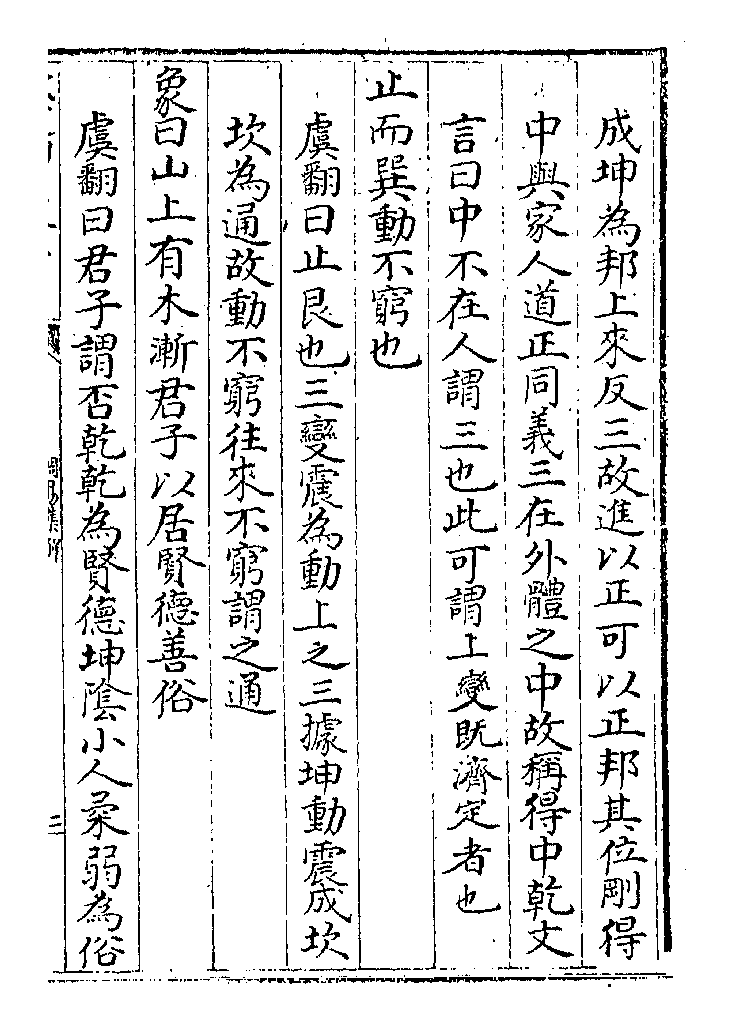 成坤為邦上來反三故進以正可以正邦其位剛得
中與家人道正同義三在外體之中故稱得中乾文
言曰中不在人謂三也此可謂上變既濟定者也
止而巽動不窮也
虞翻曰止艮也三變震為動上之三據坤動震成坎
坎為通故動不窮往來不窮謂之通
象曰山上有木漸君子以居賢德善俗
虞翻曰君子謂否乾乾為賢德坤陰小人柔弱為俗
周易集解
三